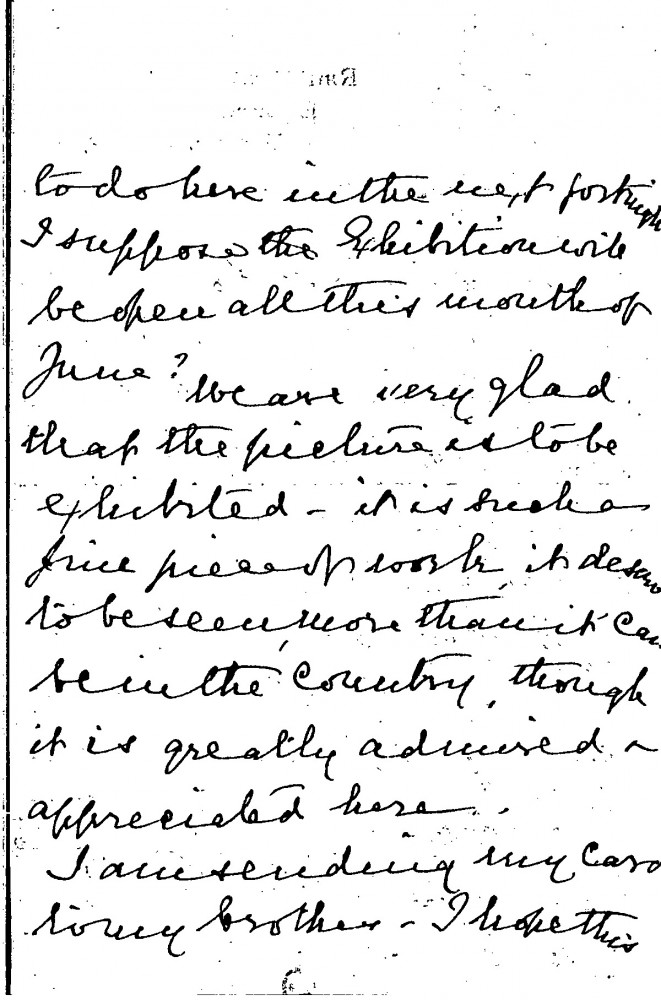 to do here in the next fortnigh
I suppose the Exhibition will
be open all this month of
June? We are very glad
that the picture is to be
exhibited - it is such a
fine piece of work, it deserv
to be seen, more than it can
be in the Country, though
it is greatly admired &
appreciated here.
I am sending my card
to my brother - I hope this